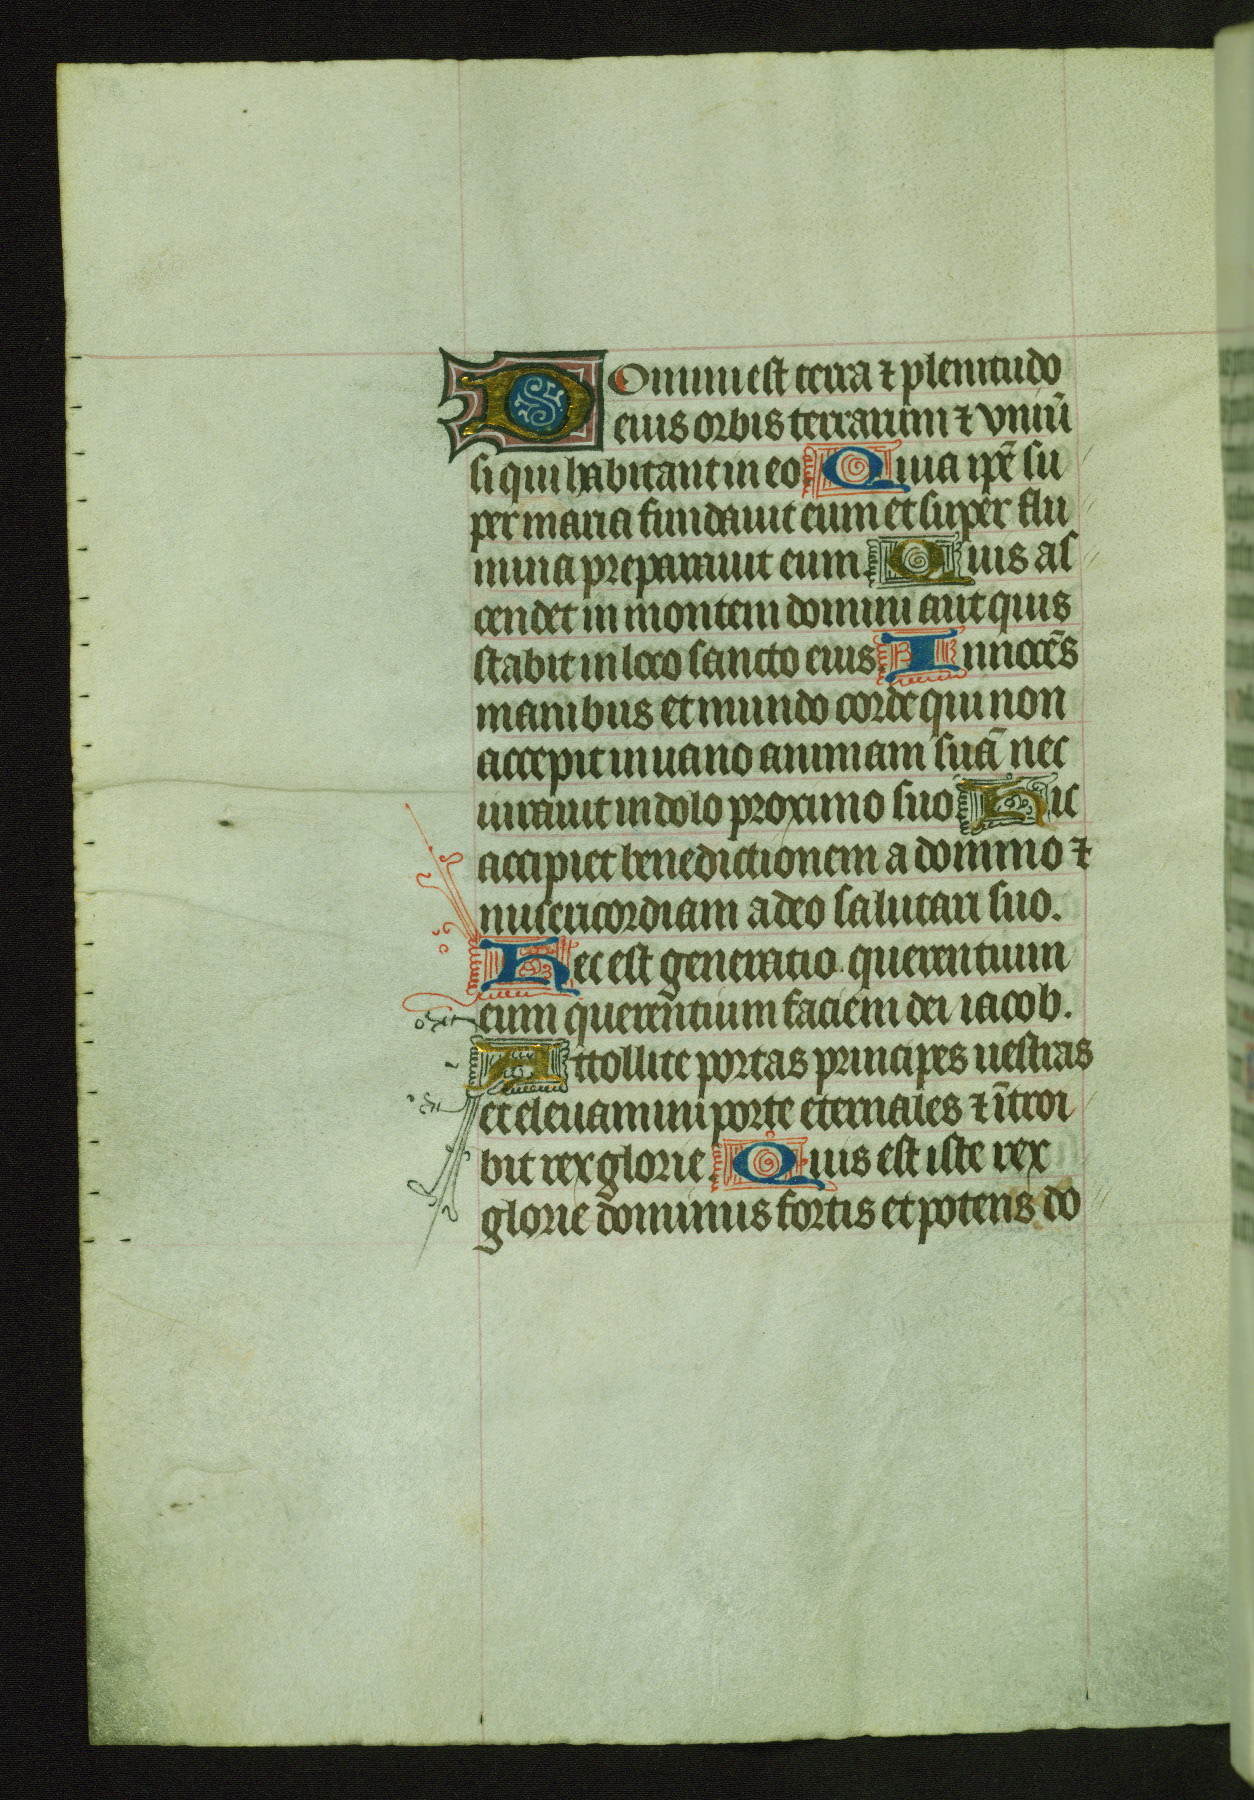 Domini est terra ⁊ plenitudo
eius orbis terrarum ⁊ vniũ
si qui habitant in eo. Quia ip̃e su
per maria fundauit eum et super flu
mina preparauit eum. Quis as
cendet in montem domini aut quis
stabit in loco sancto eius. Innocẽs
manibus et mundo corde qui non
accepit in uano animam suã nec
iurauit in dolo proximo suo. Hic
accipiet benedictionem a domino ⁊
misericordiam a deo salutari suo.
Hec est generatio querentium
eum querentium faciem dei iacob.
Attollite portas principes uestras
et eleuamini porte eternales ⁊ ĩtroi
bit rex glorie. Quis est iste rex
glorie dominus fortis et potens do